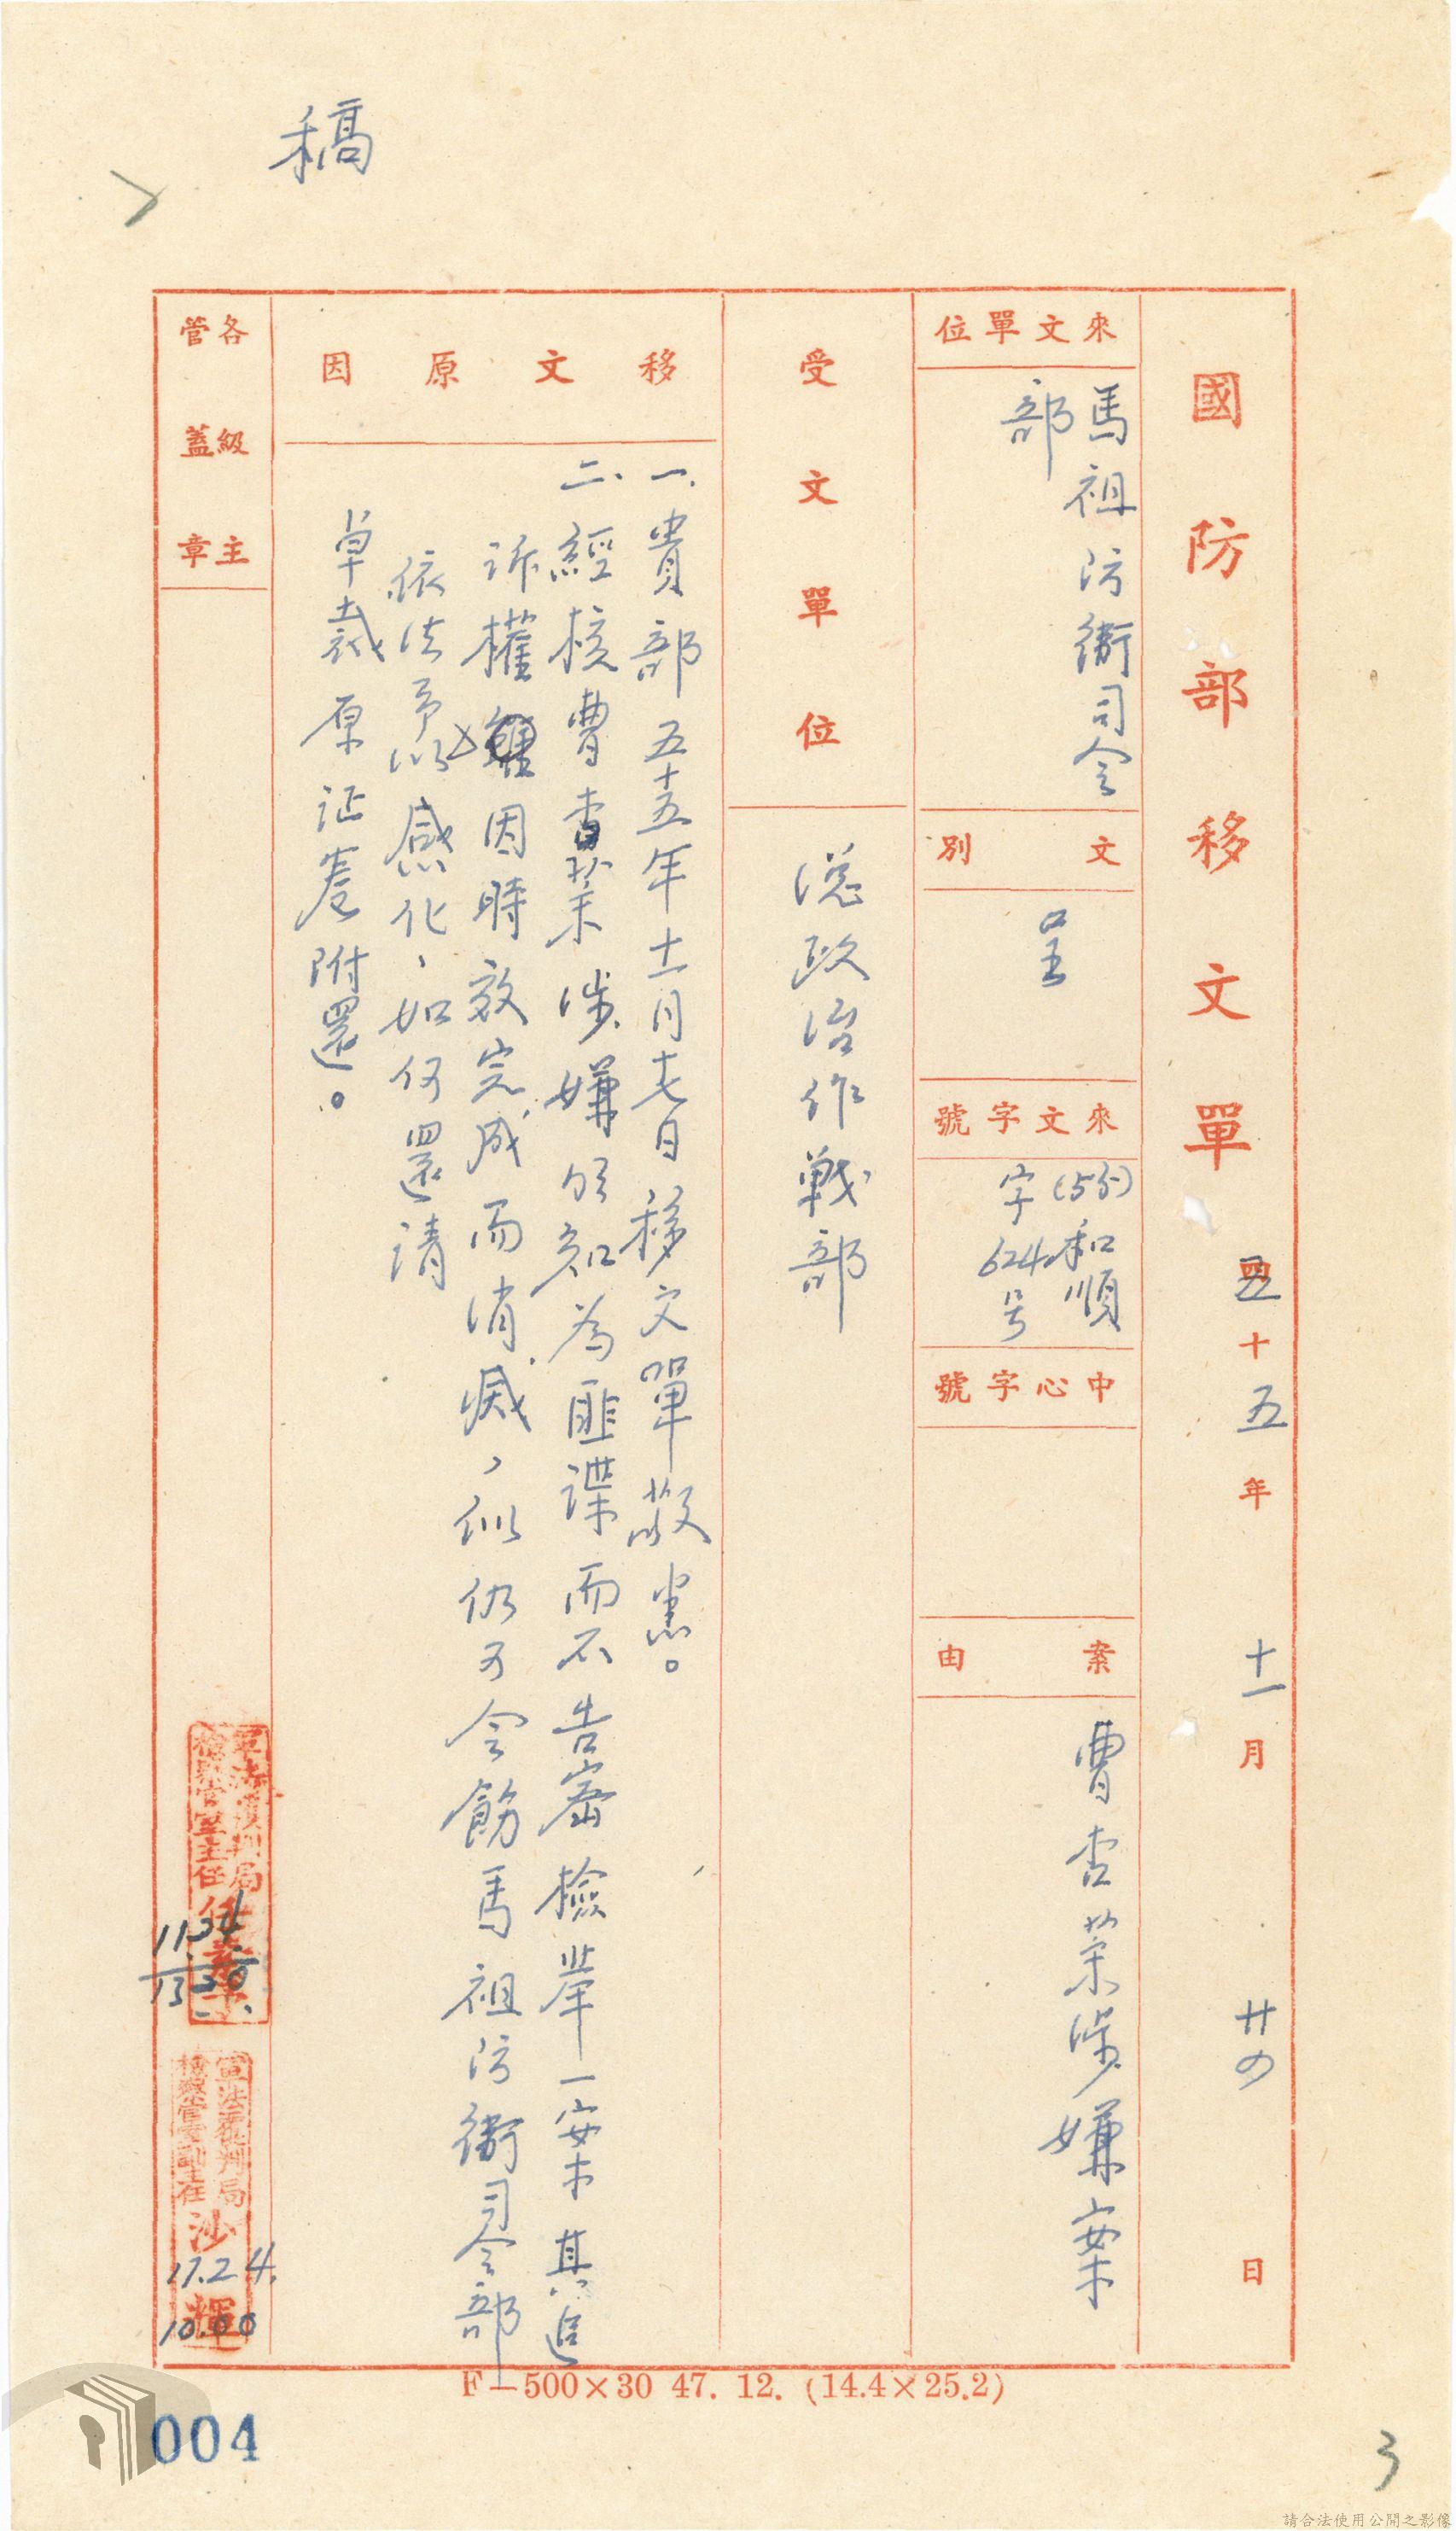 稿
國防部移文單
五十五年十一月廿四日
來文單位
馬祖防衛司令
部
文別
呈
來文字號
(55)和順
字624号
中心字號
案由
曹杏菜涉嫌案
受文單位
總政治作戰部
移文原因
一、貴部五十五年十一月十七日移文單敬悉。
二、經核曹杏菜涉嫌明知為匪諜而不告密檢舉一案其追
訴權因時效完成而消滅、似仍可令飭馬祖防衛司令部
依法予以感化、如何還請
卓裁原証卷附還。
各級主
管蓋章
軍法覆判局
檢察官室主任
11.24
13.30
軍法覆判局
檢察官室副主任 沙輝
11.24.
10.00
F—500×30 47. 12. (14.4×25.2)
004
3
請合法使用公開之影像